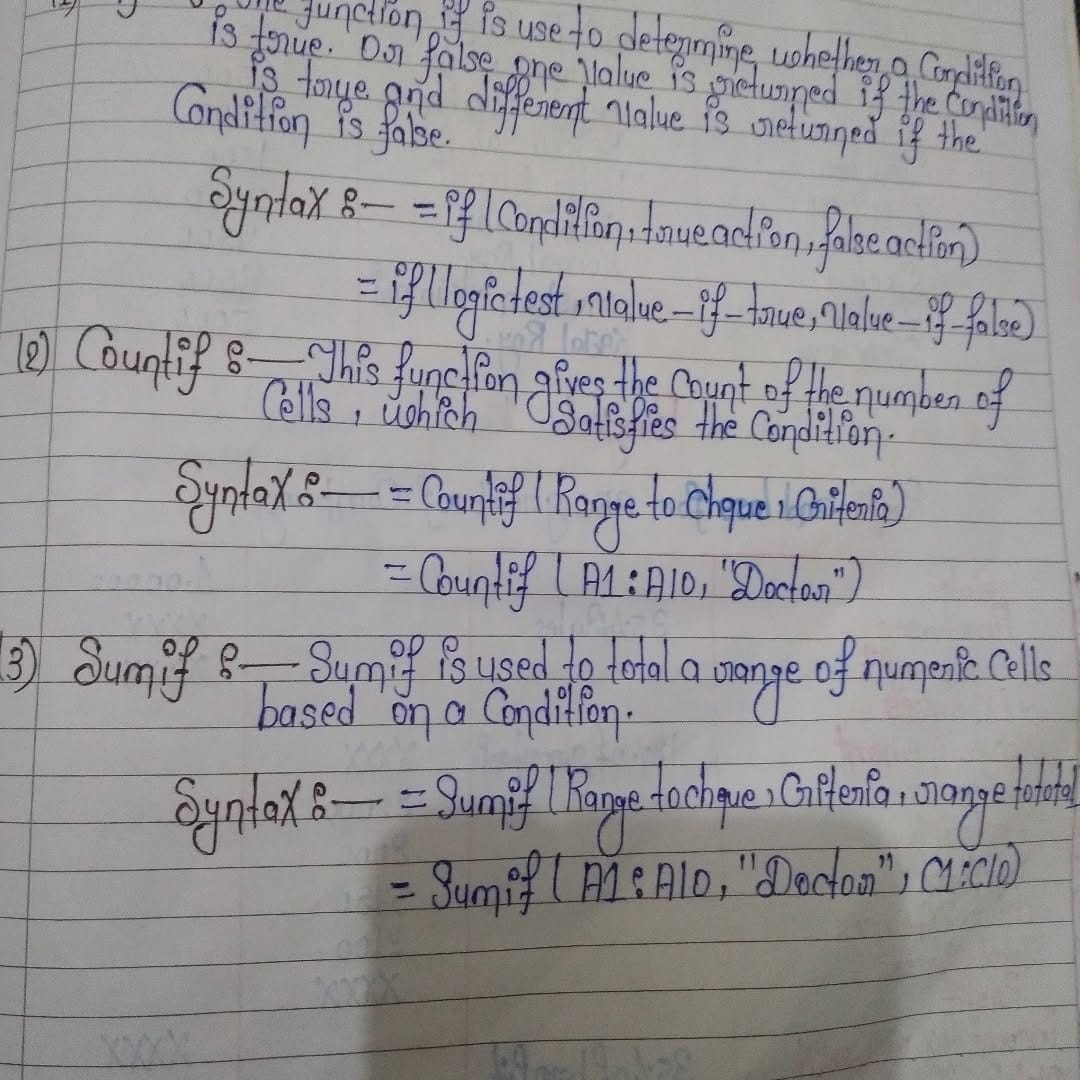 function if is use to determine, whether a Condition
is true. Oor false one Value is returned if the Condition
is true and different Value is returned if the
Condition is false.
Syntax :— =if(Condition, true action, false action)
=if(logictest, Value-if-true, Value-if-false)
(2) Countif :— This function gives the Count of the number of
Cells, which Satisfies the Condition.
Syntax :— =Countif(Range to Chque, Criteria)
=Countif (A1:A10, "Doctor")
(3) Sumif :— Sumif is used to total a range of numeric Cells
based on a Condition.
Syntax :— =Sumif(Range to chque, Criteria, range to total
=Sumif(A1:A10, "Doctor", C1:C10)